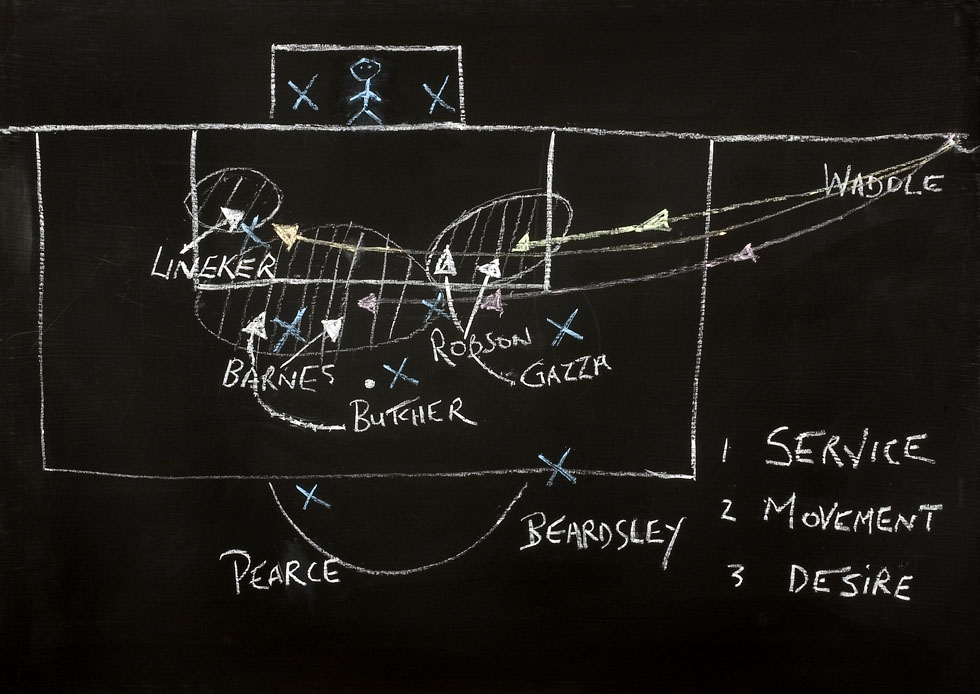 WADDLE
LINEKER
ROBSON
BARNES
GAZZA
BUTCHER
1 SERVICE
2 MOVEMENT
BEARDSLEY
PEARCE
3 DESIRE